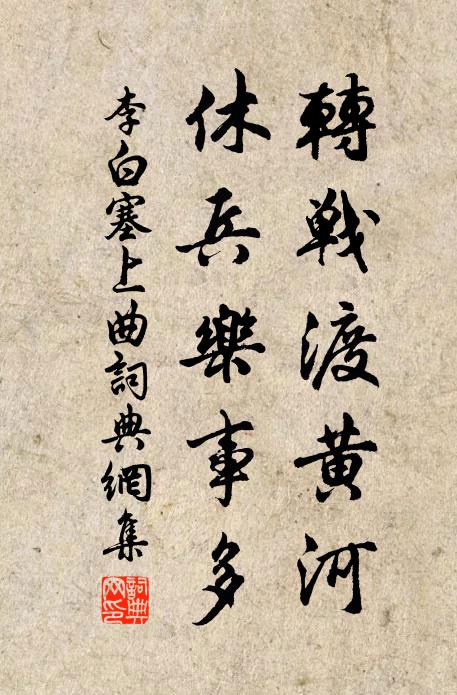 轉戰渡黄河
休兵樂事多
李白塞上曲詞典網集
詞典網印